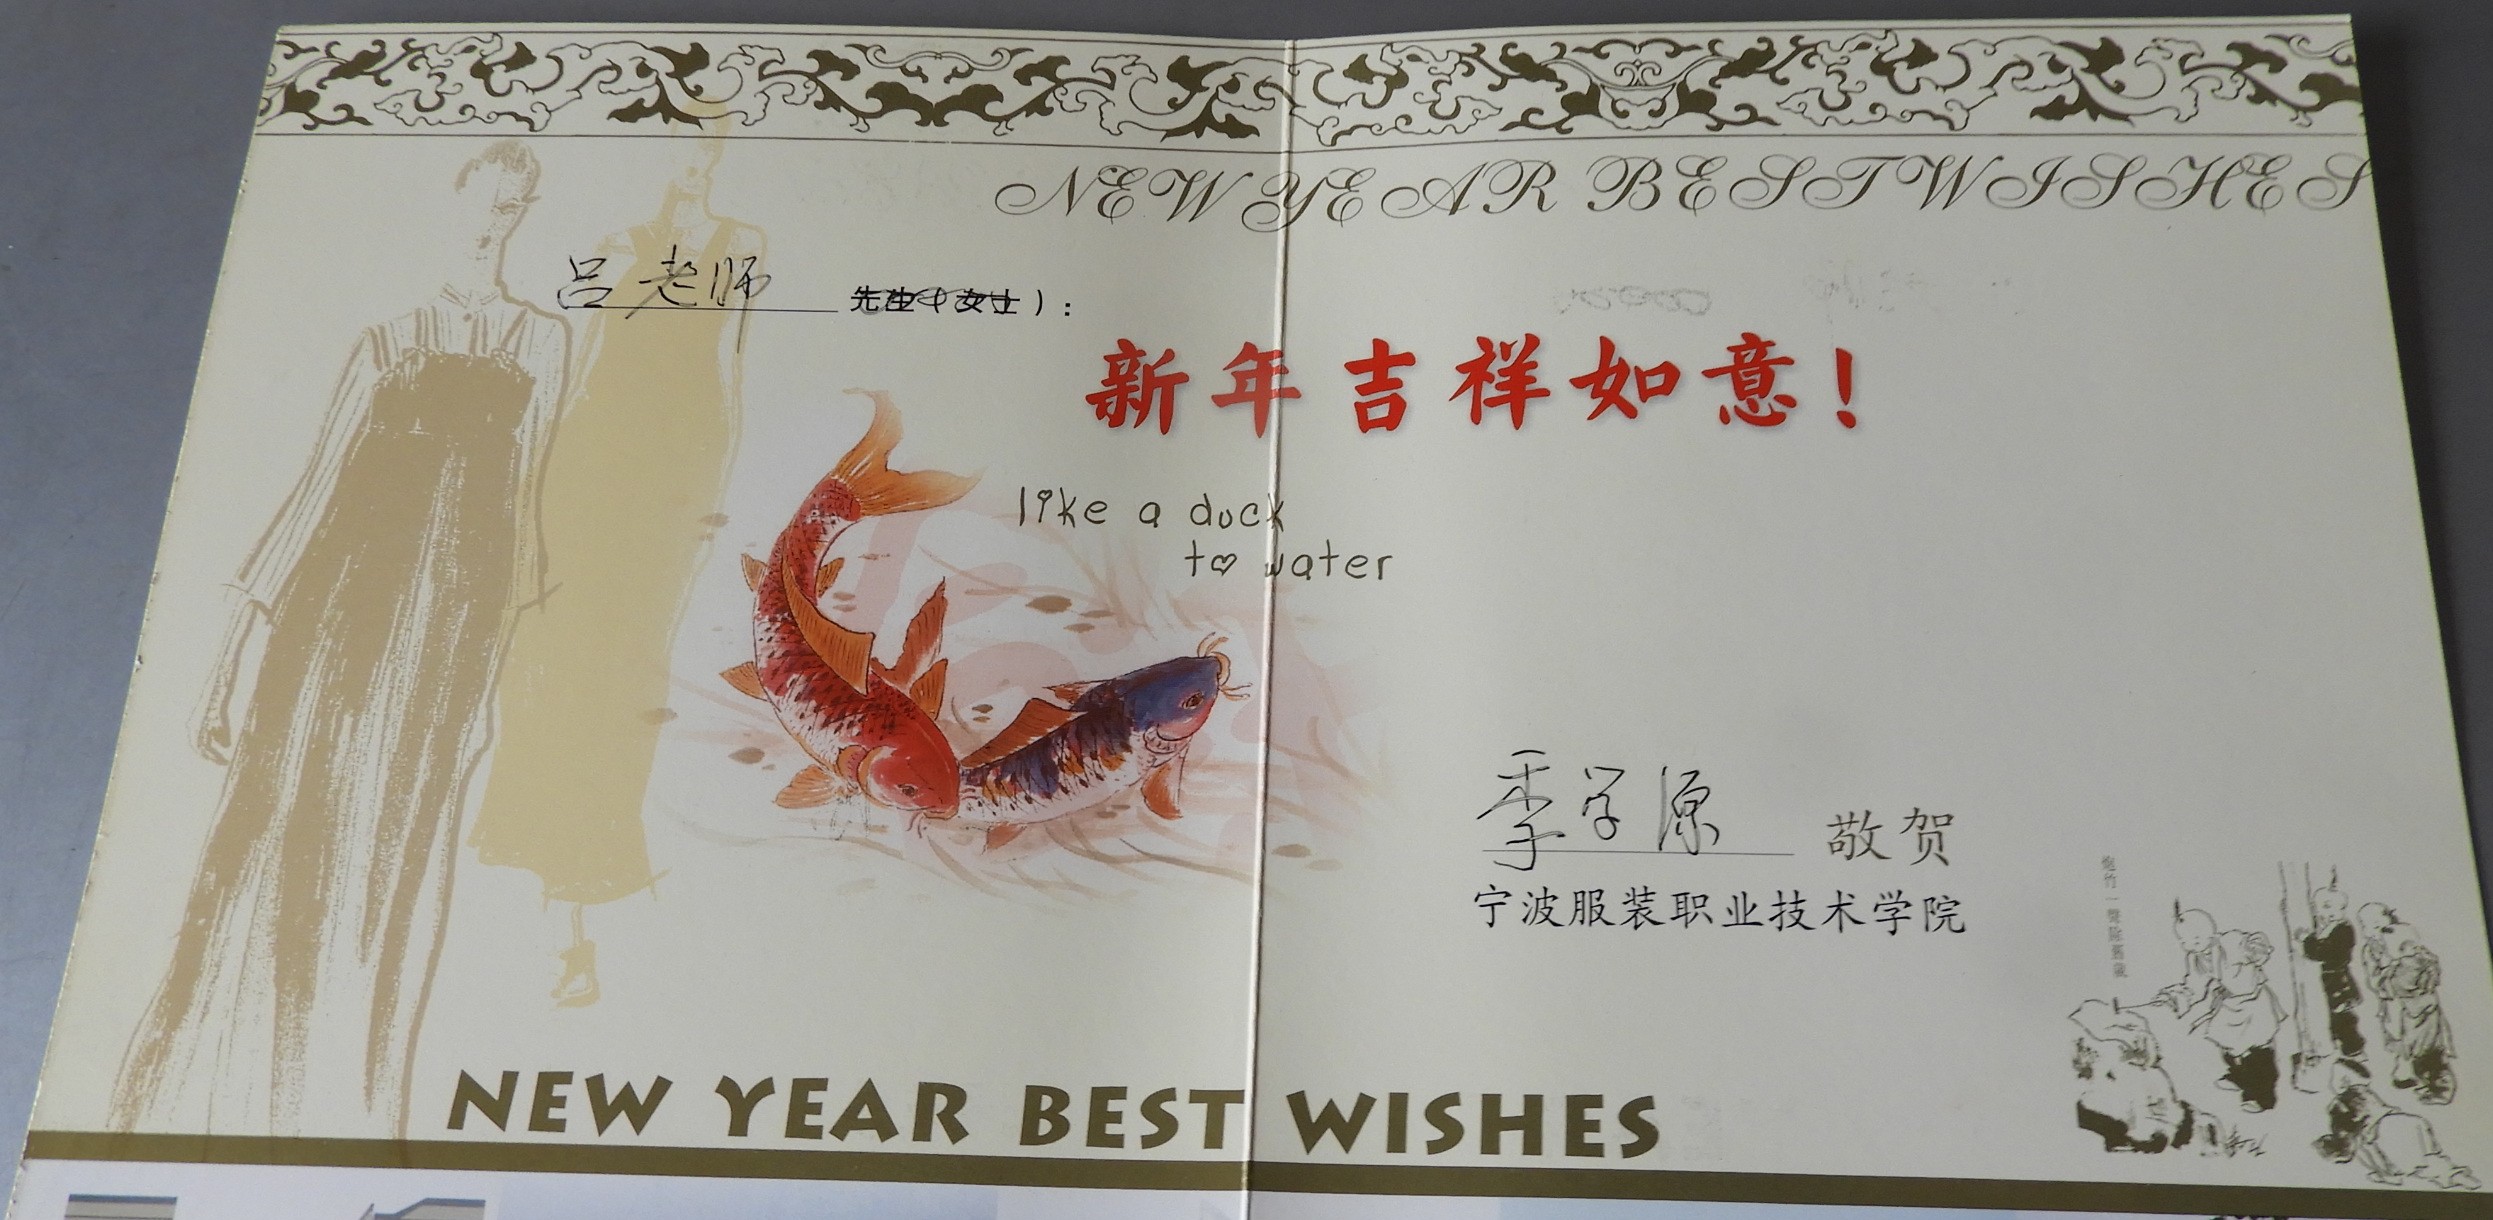 NEW YEAR BEST WISHES
吕老师 先生(女士):
新年吉祥如意!
like a duck
to water
季学源 敬贺
宁波服装职业技术学院
NEW YEAR BEST WISHES